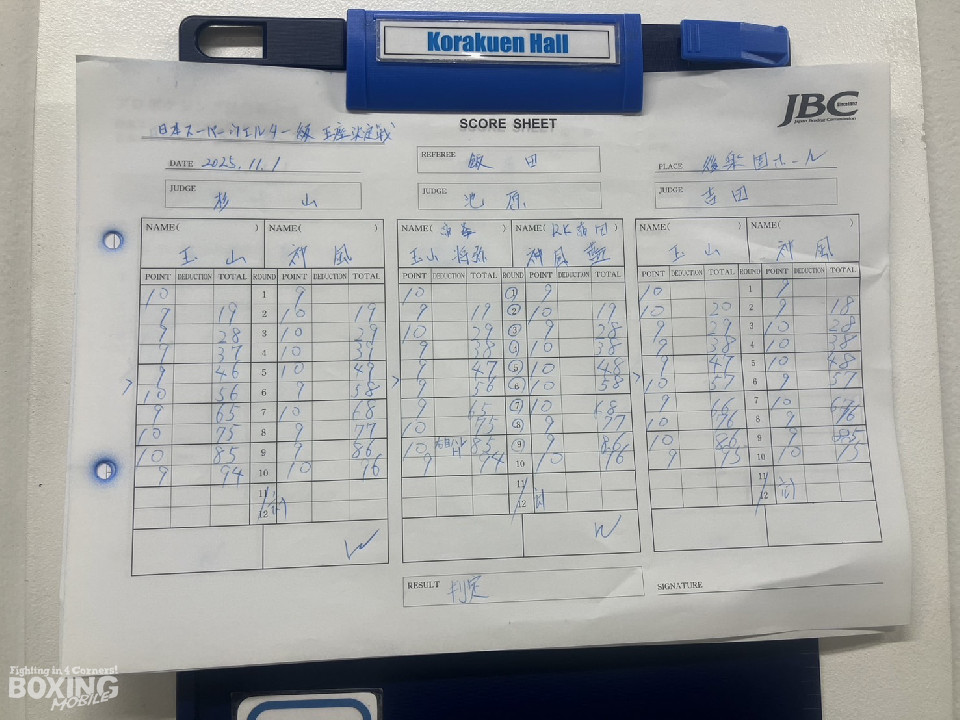 Korakuen Hall
JBC
SCORE SHEET
日本スーパーウェルター級 王座決定戦
DATE 2025.11.1
REFEREE 飯田
PLACE 後楽園ホール
JUDGE 杉山
JUDGE 池原
JUDGE 吉田
NAME( ) NAME( ) NAME( ) NAME( RK蒲田 ) NAME( ) NAME( )
玉山 神風 玉山将弥 神風 玉山 神風
POINT DEDUCTION TOTAL ROUND POINT DEDUCTION TOTAL POINT DEDUCTION TOTAL ROUND POINT DEDUCTION TOTAL POINT DEDUCTION TOTAL ROUND POINT DEDUCTION TOTAL
10 1 9 10 1 9 10 1 9
9 19 2 10 19 9 19 2 10 19 10 20 2 9 18
9 28 3 10 29 10 29 3 9 28 9 29 3 10 28
9 37 4 10 39 9 38 4 10 38 9 38 4 10 38
9 46 5 10 49 9 47 5 10 48 9 47 5 10 48
10 56 6 9 58 9 56 6 10 58 10 57 6 9 57
9 65 7 10 68 9 65 7 10 68 9 66 7 10 67
10 75 8 9 77 10 75 8 9 77 10 76 8 9 76
10 85 9 9 86 10 85 9 9 86 10 86 9 9 85
9 94 10 10 96 9 94 10 10 96 9 95 10 10 95
11 11 11
12 計 12 計 12 計
W W
RESULT 判定
SIGNATURE
Fighting in 4 Corners!
BOXING
MOBILE